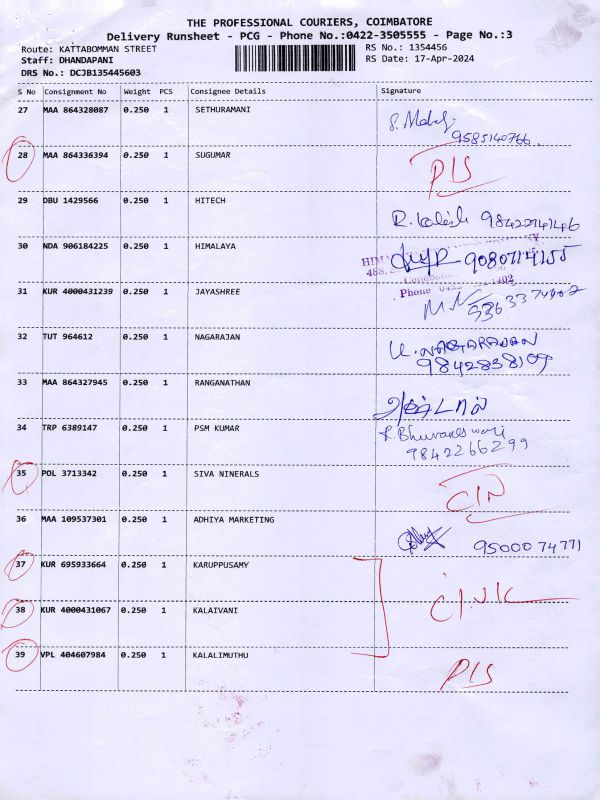 THE PROFESSIONAL COURIERS, COIMBATORE
Delivery Runsheet - PCG - Phone No.:0422-3505555 - Page No.:3
Route: KATTABOMMAN STREET RS No.: 1354456
Staff: DHANDAPANI RS Date: 17-Apr-2024
DRS No.: DCJB135445603
S No Consignment No Weight PCS Consignee Details Signature
27 MAA 864328087 0.250 1 SETHURAMANI
9585140766
28 MAA 864336394 0.250 1 SUGUMAR
29 DBU 1429566 0.250 1 HITECH
30 NDA 906184225 0.250 1 HIMALAYA 9080714155
Phone 0422
31 KUR 4000431239 0.250 1 JAYASHREE
32 TUT 964612 0.250 1 NAGARAJAN U. NAGARAJAN
9842838109
33 MAA 864327945 0.250 1 RANGANATHAN
34 TRP 6389147 0.250 1 PSM KUMAR Bhuvaneswari
9842266299
35 POL 3713342 0.250 1 SIVA NINERALS
36 MAA 109537301 0.250 1 ADHIYA MARKETING
95000 74771
37 KUR 695933664 0.250 1 KARUPPUSAMY
38 KUR 4000431067 0.250 1 KALAIVANI
39 VPL 404607984 0.250 1 KALALIMUTHU